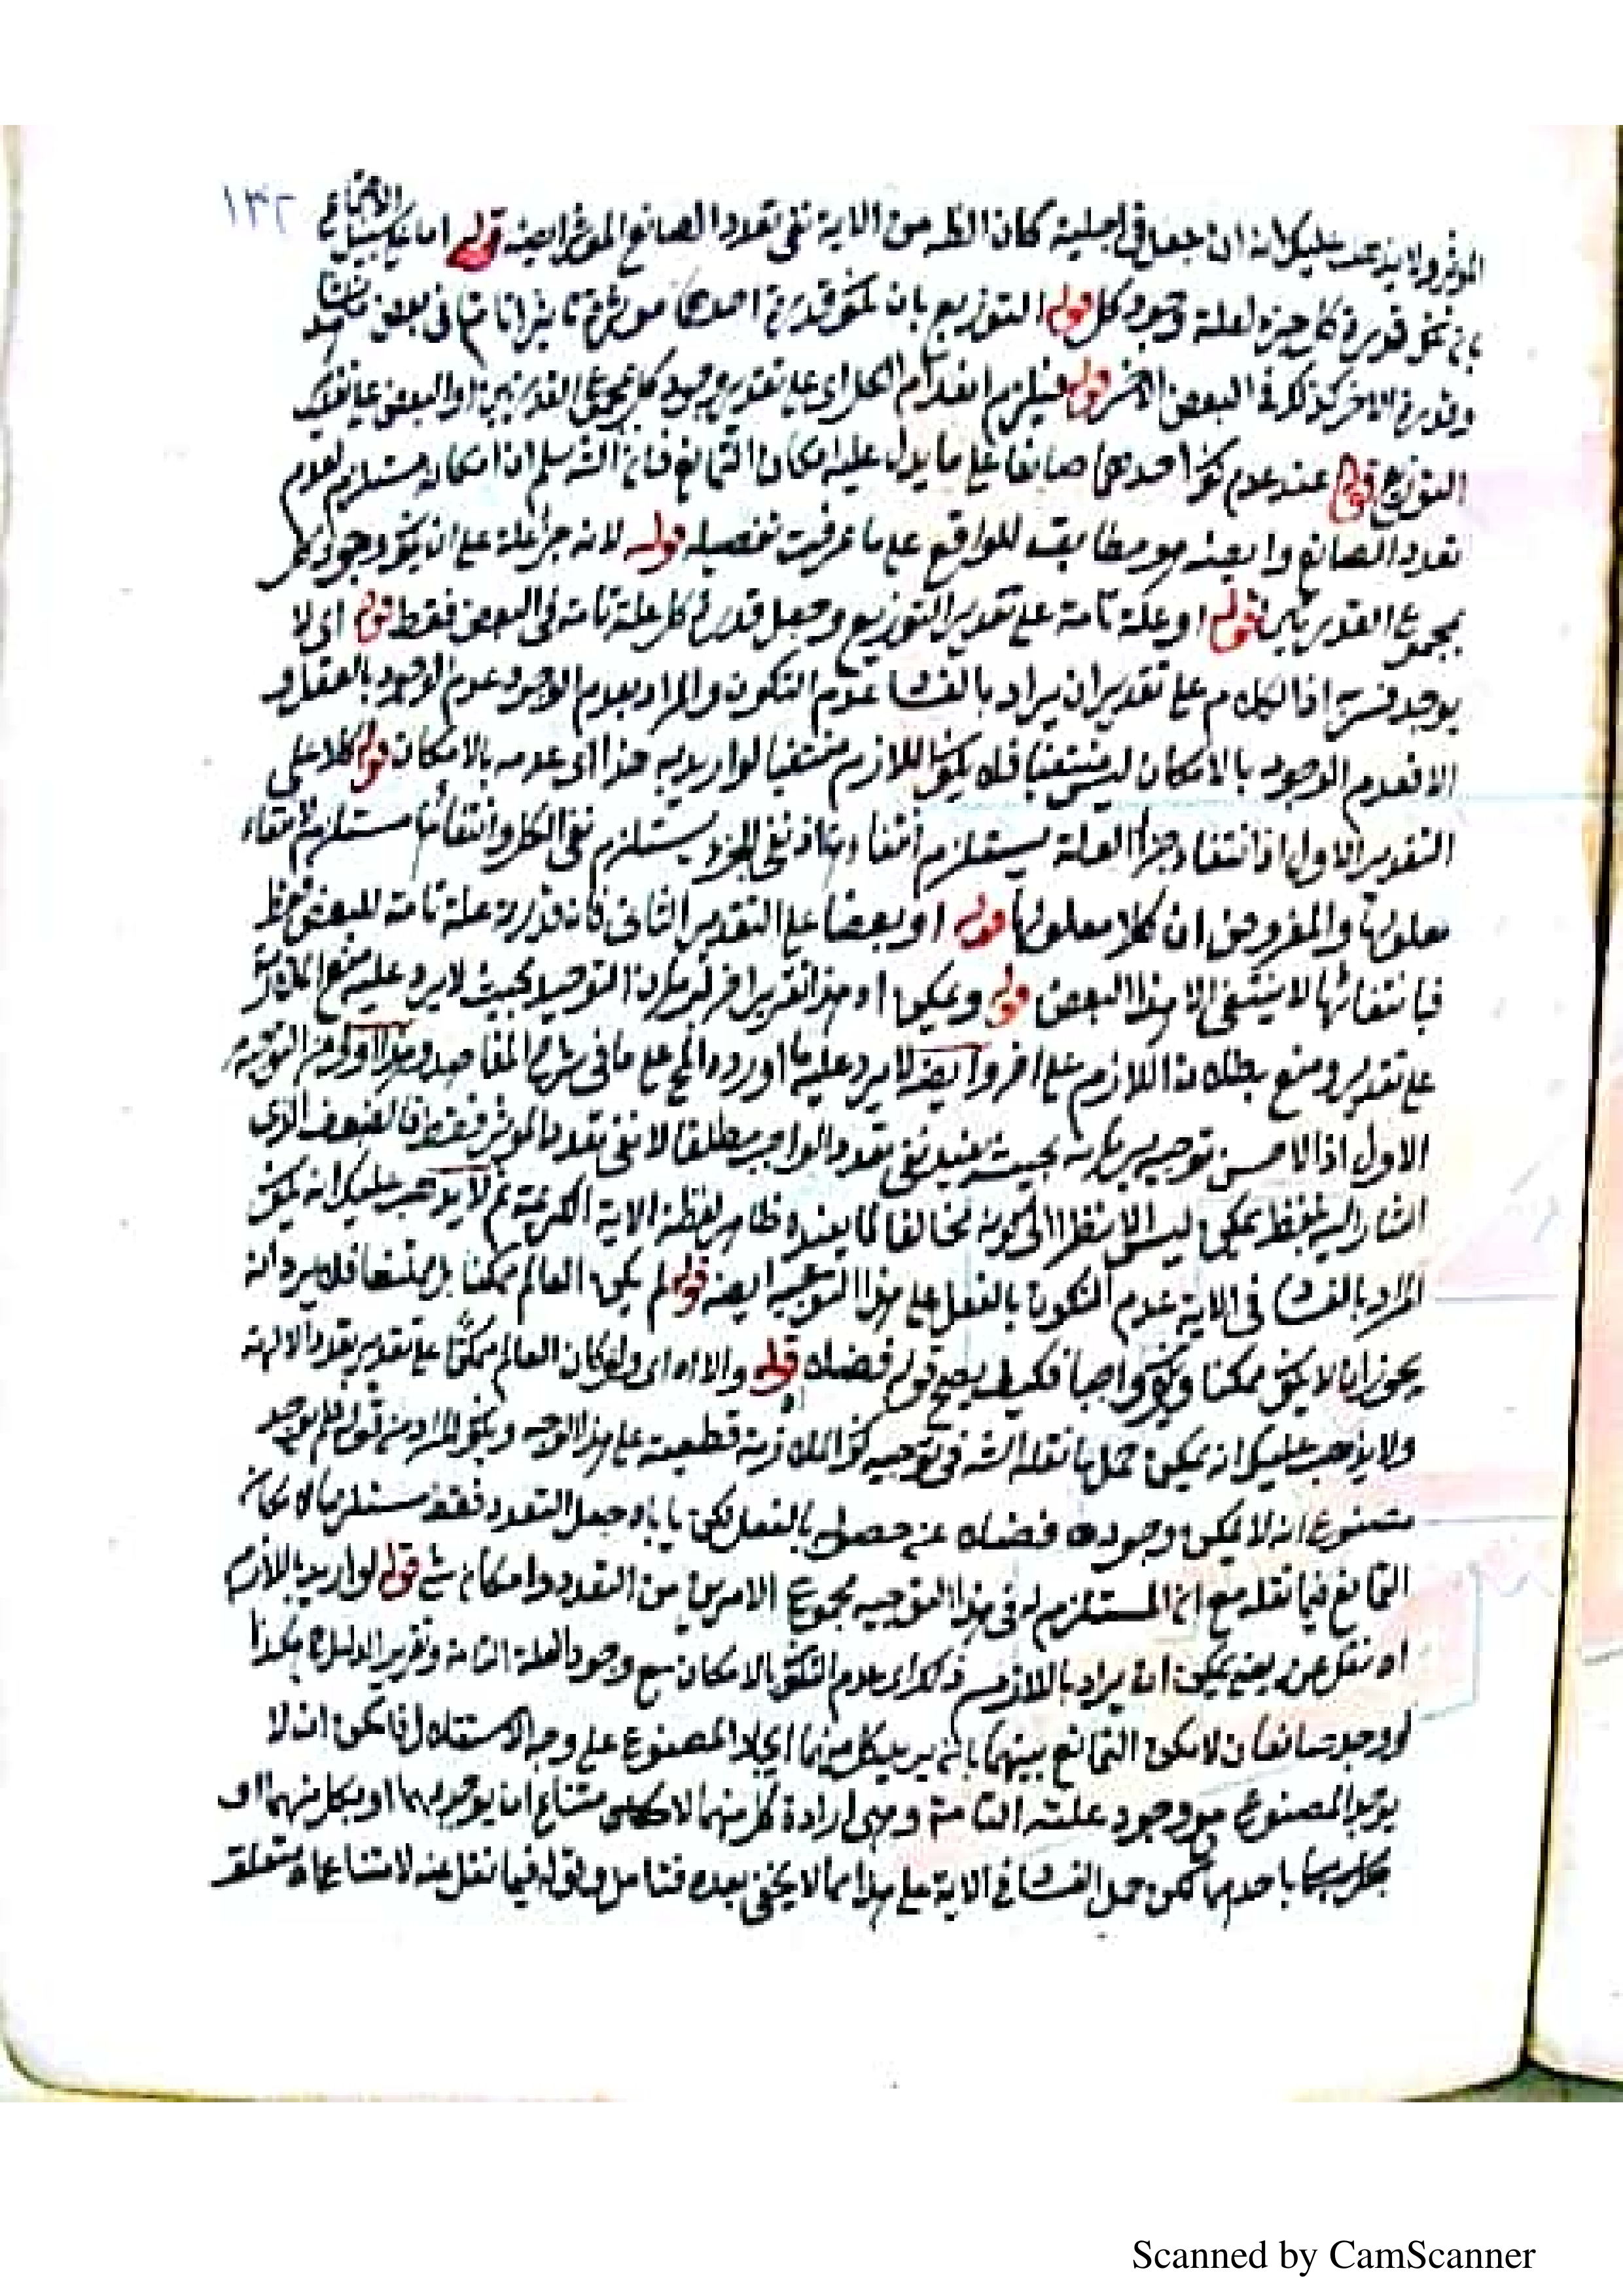 ١٣٢
المؤثر ولا يذهب عليك انه ان جعل في اجلية كان الظ من الاية نفى تعدد الصانع المؤثر ايضه قوله اما على سبيل الاجتماع
بان تكون قدرة كل جزء لعلة وجود كل قوله التوزيع بان تكون قدرة احدهما مؤثرة تاثيرا تاما في بعض
وقدرة الاخر كذلك في البعض الاخر قوله فيلزم انعدام الكل اى على تقدير وجود كل بمجموع القدرتين او البعض على تقدير
التوزيع قوله عند عدم كون احدهما صانعا على ما يدل عليه امكان التمانع فان الش سلم ان امكانه مستلزم لعدم
تعدد الصانع وايضه هو مطابق للواقع على ما عرفت تفصيله قوله لانه جزء علة على ان يكون وجود كل
بمجموع القدرتين قوله او علة تامة على تقدير التوزيع وجعل قدرة كل علة تامة في البعض فقط قوله اى لا
يوجد اذ الكلام على تقدير ان يراد بالفساد عدم التكون والمراد بعدم الوجود عدم الوجود بالفعل و
الا فعدم الوجود بالامكان ليس منتفيا فلا يكون اللازم منتفيا لو اريد به هذا اى عدمه بالامكان قوله كلا على
التقدير الاول اذ انتفاء جزء العلة يستلزم انتفاءها اذ نفى الجزء يستلزم نفى الكل وانتفائها مستلزم لانتفاء
معلولها والمفروض ان كلا معلولها قوله او بعضا على التقدير الثانى فان قدرته علة تامة للبعض فقط
فبانتفائها لا ينتفى الا هذا البعض قوله ويمكن اه هذا تقرير اخر لبرهان التوحيد بحيث لا يرد عليه منع الملازمة
على تقدير ومنع بطلان اللازم على اخر وايضه لا يرد عليه ما اورده المح على ما في شرح المقاصد وهذا اولى من التوجيه
الاول اذ الاحسن توجيه برهانه بحيث يفيد نفى تعدد الواجب مطلقا لا نفى تعدد المؤثر فقط فالضعف الذى
اشار اليه بلفظ يمكن ليس الا نظرا الى كونه مخالفا لما يفيده ظاهر لفظة الاية الكريمة ثم لا يذهب عليك انه يكون
المراد بالفساد في الاية عدم التكون بالفعل على هذا التوجيه ايضه قوله لم يكن العالم ممكنا بل ممتنعا فلا يرد انه
يجوز ان لا يكون ممكنا ويكون واجبا فكيف يصح قوله فضلا قوله والا اه اى ولو كان العالم ممكنا على تقدير تعدد الالهة
ولا يذهب عليك انه يمكن حمل ما نقله الش في توجيه كون الملازمة قطعية على هذا الوجه ويكون المراد من قوله فلم يوجد
مصنوع انه لا يمكن وجوده فضلا عن حصوله بالفعل لكن ياباه جعل التعدد فقط مستلزما لامكان
التمانع فيما نقله مع ان المستلزم له في هذا التوجيه مجموع الامرين من التعدد وامكان شئ قوله لو اريد باللازم
اه نقل عنه يعنى يمكن ان يراد باللازم ذلك اى عدم التكون بالامكان مع وجود العلة التامة وتقرير الدليل هكذا
لو وجد صانعان لامكن التمانع بينهما بان يريد كل منهما ايجاد المصنوع على وجه الاستقلال فامكن ان لا
يوجد المصنوع مع وجود علته التامة وهى ارادة كل منهما لامتناع ان يوجد بهما او بكل منهما او
باحدهما لكن حمل الفساد في الاية على هذا مما لا يخفى بعده فتامل وقوله فيما نقل عنه لامتناع اه متعلق
Scanned by CamScanner